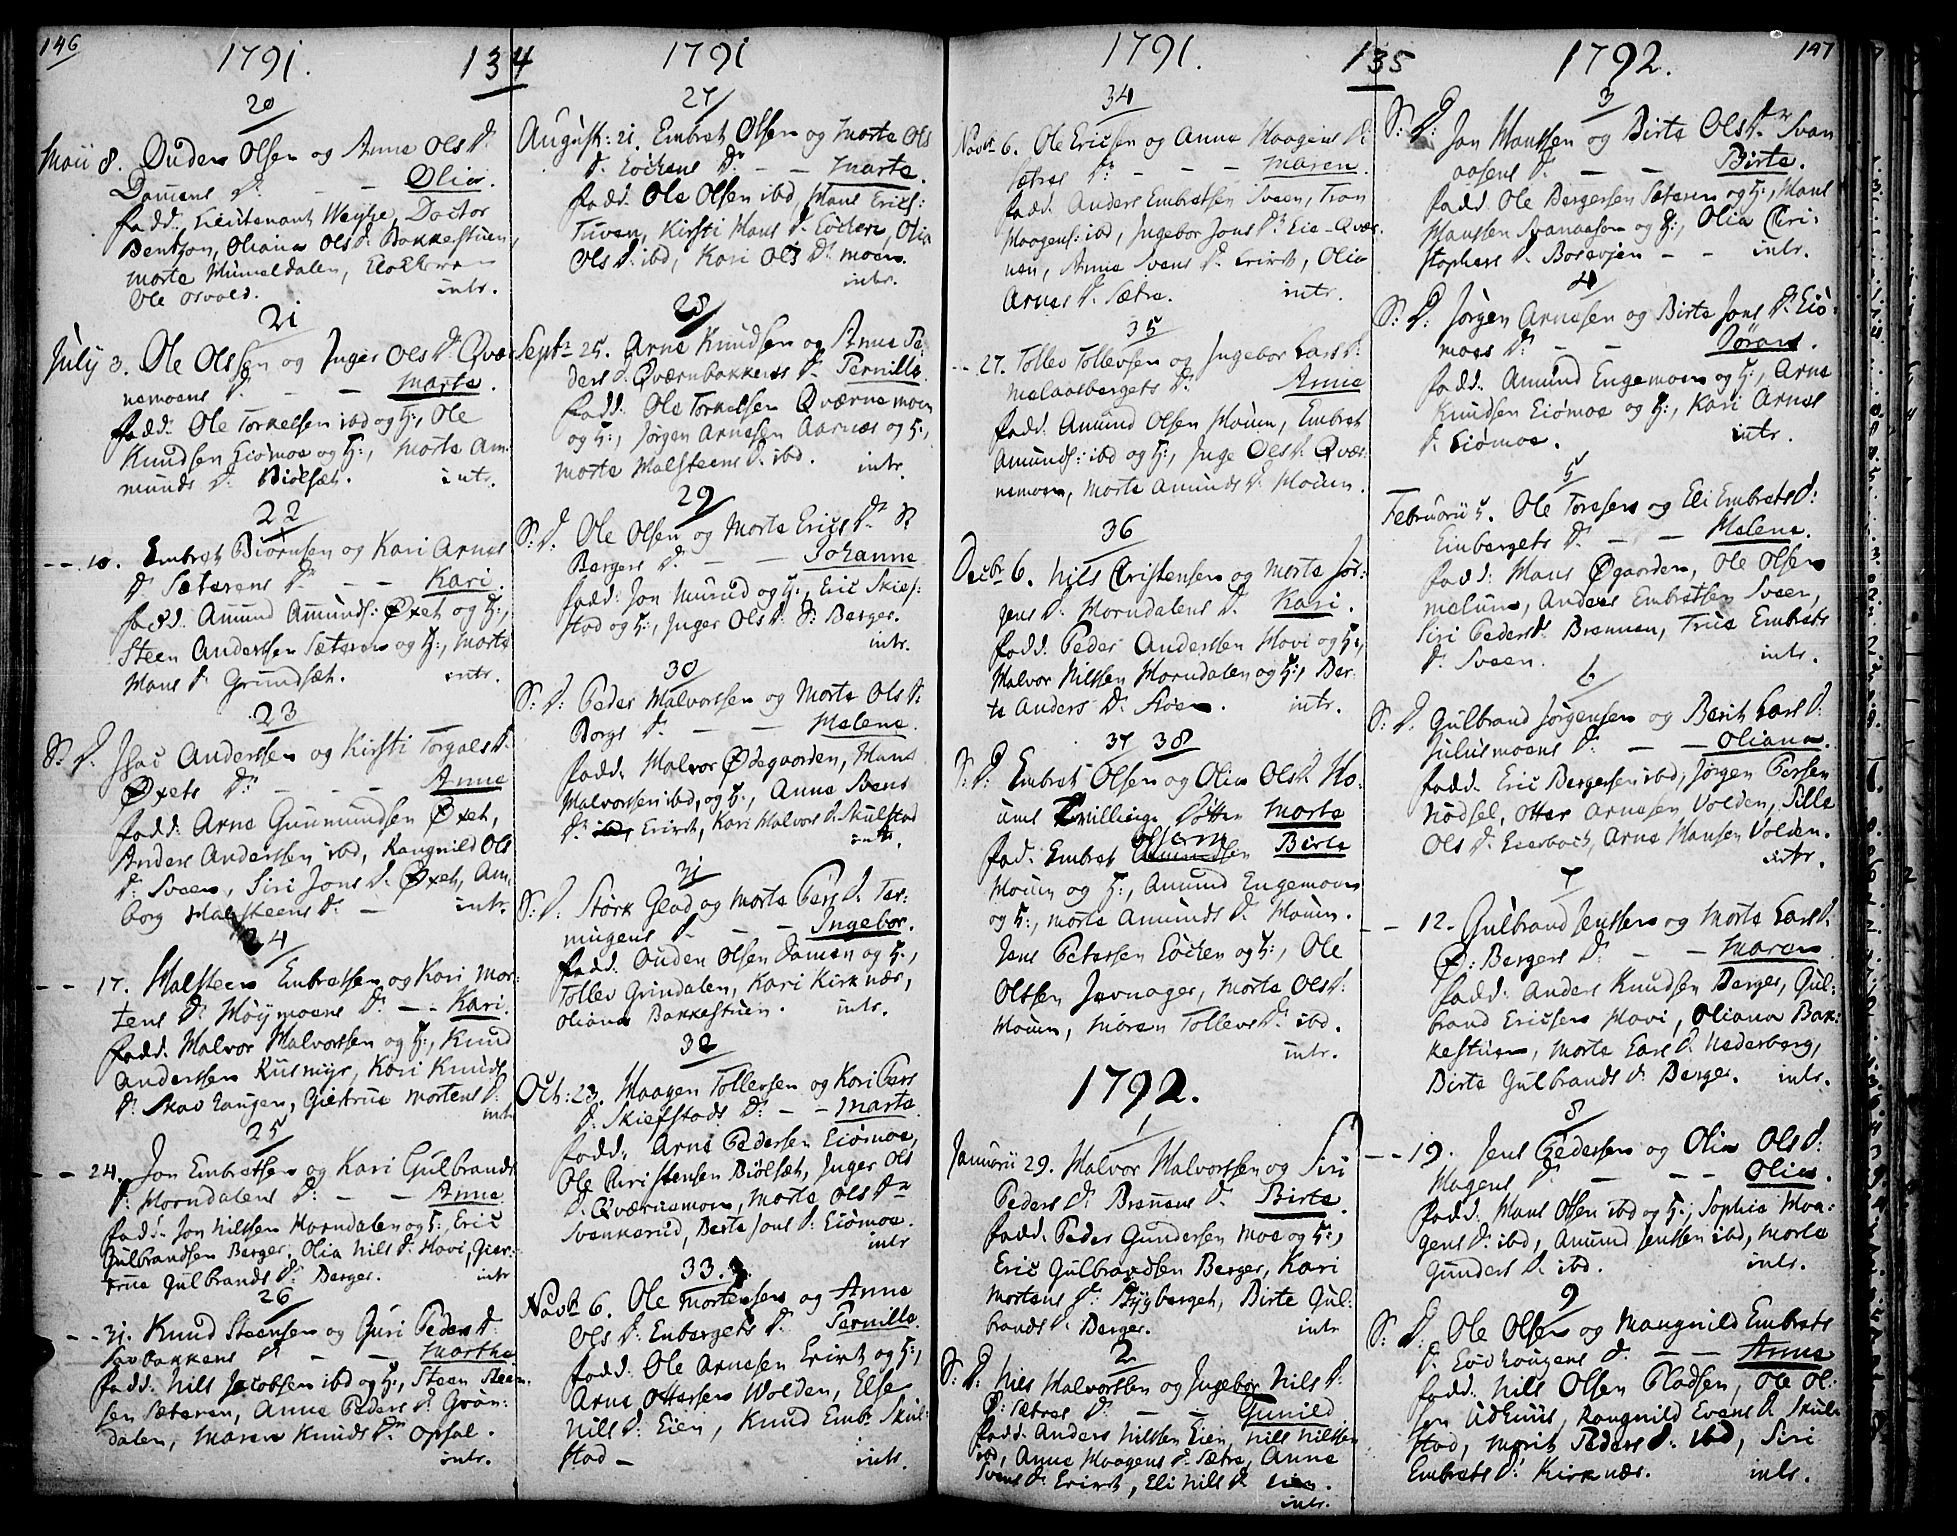 146
1791.
134
20
Maii 8. Ouden Olsen og Anne Ols D:
Damens D: - - Olia.
fadd. Lieutenant Weyhe, Doctor
Bentson, Oliana Ols D: Bakkestuen,
Morte Mümeldalen, Klokkeren
Ole Osvold. intr.
21
July 3. Ole Olsen og Inger Ols D: Qvær
nemoens D: - - Marte.
fadd. Ole Torkelsen ibd og H:, Ole
Knudsen Eiömoe og H:, Morte Am
munds D: Biölset. intr.
22
-- 10. Embret Biörnsen og Kari Arnes
D: Sæterens D: - - Kari.
fadd. Amund Amunds: Øxet og H:,
Steen Anderssen Sæteren og H:, Morte
Hans D: Grundset. intr.
23
S: D. Isac Anderssen og Kirsti Torgals D:
Øxets D: - - - Anne
fadd: Arne Gunmundsen Øxet,
Anders Anderssen ibd, Rangnild Ols
D: Sveen, Siri Jons D: Øxet, Am
borg Halsteens D: - intr.
24
-- 17. Halsteen Embretsen og Kari Mor
tens D: Möymoens D: - - Kari.
fadd. Halvor Halvorssen og H:, Knud
Anderssen Rusmyr, Kari Knuds
D: Skavhaugen, Giertrue Mortens D:
intr
25
-- 24. Jon Embretsen og Kari Gulbrands
D: Horndalens D: - - Anne
fadd. Jon Nilssen Horndalen og H:, Eric
Gulbrandsen Berger, Olia Nils D: Hovi, Gier-
true Gulbrands D: Berger. intr
26
-- 31. Knud Steensen og Guri Peders D:
Savbakkens D: - - Marthe
fadd. Nils Jacobsen ibd og H:, Steen Steen
sen Sæteren, Anne Peders D: Grön-
dalen, Maren Knuds D: Opsal.
intr.
1791
27
August: 21. Embret Olsen og Morte Ols
D: Löckens D: - - Marte.
fadd. Ole Olsen ibd, Hans Erics:
Tuven, Kirsti Hans D: Löcken, Olia
Ols D: ibd, Kari Ols D: Moen.
intr.
28
Septr 25. Arne Knudsen og Anne Pe
ders D: Qværnbakkens D: Pernille.
fadd. Ole Torkelsen Qværnemoen
og H:, Jörgen Arnesen Aarnæs og H:,
Morte Halsteens D: ibd. intr.
29
S: D: Ole Olsen og Morte Erics D: S:
Bergers D: - - Johanne
fadd: Jon Murud og H:, Eric Skief:
stad og H:, Inger Ols D: S: Berger.
intr.
30
S: D: Peder Halvorssen og Morte Ols D:
Borgs D: - - Helene.
fadd. Halvor Ødegaarden, Hans
Halvorssen ibd, og H:, Anne Svens
D: Erirst, Kari Halvors D: Skulstad
intr.
31
S: D: Störk Glad og Morte Pers D: Ter-
ningens D: - - Ingebor.
fadd. Ouden Olsen Damen og H:,
Tollev Grindalen, Kari Kirknær,
Oliana Bakkestuen. intr.
32
Octb: 23. Haagen Tollefsen og Kari Pers
D: Skiefstads D: - - Marte.
fadd. Arne Pedersen Eiömoe,
Ole Christensen Biölset, Inger Ols
D: Qværnemoen, Morte Ols D:
Svenkerud, Berte Jons D: Eiömoe.
intr
33.
Novb: 6. Ole Mortensen og Anne
Ols D: Enbergets D: Pernille.
fadd. Ole Arnesen Erirst og H:,
Arne Ottersen Wolden, Else
Nils D: Eien, Knud Emb: Skul-
stad - intr.
1791.
135
34
Novbr 6. Ole Ericsen og Anne Haagens D:
Sætres D: - - - Maren.
fadd. Anders Embretsen Sveen, Iver
Haagens: ibd, Ingebor Jons D: Eie-Qvær
nen, Anne Svens D: Erirst, Olia
Arnes D: Sætre. intr.
35
-- 27. Tollev Tollevsen og Ingebor Lars D:
Melaasbergets D: Anne
fadd. Amund Olsen Houm, Embret
Amunds: ibd og H:, Inge Ols D: Qvær
nemoen, Morte Amunds D: Houm.
36
Decbr 6. Nils Cristensen og Morte Jör:
gens D: Horndalens D: Kari.
fadd. Peder Anderssen Hovi og H:,
Halvor Nilssen Horndalen og H:, Ber
te Anders D: Stoen. intr.
37 38
S: D: Embret Olsen og Olia Ols D: Ho:
ums Tvillinge Dötter Morte
fad: Embret Olsen Birte
Houm og H:, Amund Engemoen
og H:, Morte Amunds D: Houm.
Jens Petersen Löcken og H:, Ole
Olssen Jevnager, Morte Ols D:
Houm, Maren Tollevs D: ibd.
intr.
1792.
1
Januarii 29. Halvor Halvorssen og Siri
Peders D: Brenens D: Birte.
fadd. Peder Gundersen Moe og H:,
Eric Gulbrandsen Berger, Kari
Mortens D: Nyberget, Birte Gul:
brands D: Berger. intr
2
S: D: Nils Halvorssen og Ingebor Nils D:
S: Sætres D: - - Gunild
fadd. Anders Nilssen Eien, Nils Nilssen
ibd, Anne Haagens D: Sætre, Anne
Svens D: Erirst, Eli Nils D: Eien.
intr.
1792.
147
3
S: D: Jon Hanssen og Birte Ols D: Svan
aasens D: - - Birte.
fadd. Ole Bergersen Sæteren og H:, Hans
Hanssen Svanaasen og H:, Olia Cri-
stophers D: Bosevjen - - intr.
4
S: D: Jörgen Arnesen og Birte Jons D: Eiö:
moes D: - - Göran.
fadd. Amund Engemoen og H:, Arne
Knudsen Eiömoe og H:, Kari Arnes
D: Eiömoe. intr.
5
Februarii 5. Ole Toresen og Eli Embrets D:
Eimbergets D: - - Helene.
fadd: Hans Øgaarden, Ole Olsen
Melum, Anders Embretsen Sveen,
Siri Peders D: Brennen, True Embrets
D: Sveen. intr.
6
S: D. Gulbrand Jörgensen og Berit Lars D:
Julusmoens D: - - Oliana.
fadd. Eric Bergersen ibd, Jörgen Persen
Nödsel, Otter Arnesen Volden, Sille
Ols D: Leerbeck, Arne Hansen Volden.
intr.
7
-- 12. Gulbrand Jenssen og Morte Lars D:
Ø: Bergers D: - - Maren
fadd. Anders Knudsen Berger, Gul:
brand Ericsen Hovi, Oliana Bak:
kestuen, Morte Lars D: Nederberg,
Birte Gulbrands D: Berger. intr.
8
-- 19. Jens Pedersen og Olia Ols D:
Hagens D: - - Olia.
fadd. Hans Olsen ibd og H:, Sophie Haa:
gens D: ibd, Amund Jenssen ibd, Morte
Gunders D: ibd. intr.
9
S: D. Ole Olsen og Mangnild Embrets
D: Evidhougens D: - - Anne
fadd. Nils Olsen Pladsen, Ole Ol:
sen Udhuus, Rangnild Evens D: Skul:
stad, Marit Peders D: ibd, Siri
Embrets D: Kirknær. intr.